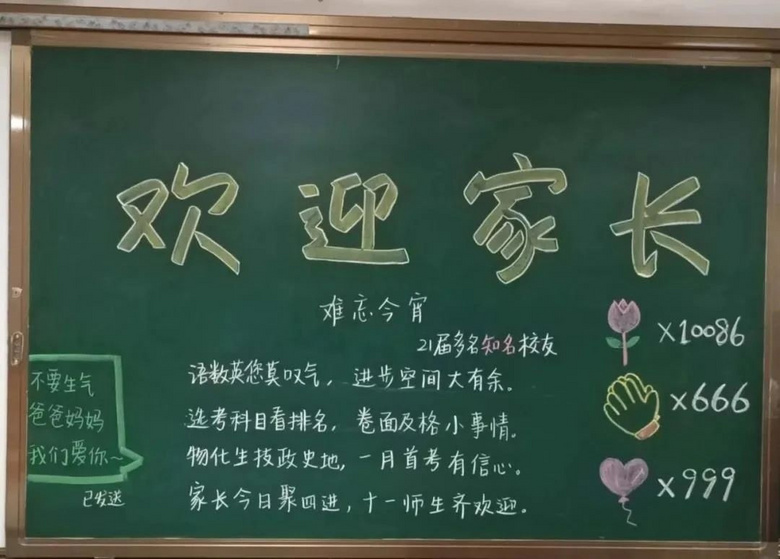 欢迎家长
难忘今宵
21届多名知名校友
语数英您莫叹气，进步空间大有余。
选考科目看排名，卷面及格小事情。
物化生技政史地，一月首考有信心。
家长今日聚四进，十一师生齐欢迎。
不要生气
爸爸妈妈
我们爱你~
已发送
x10086
x666
x999